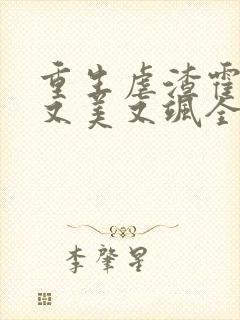 重生虐渣霍
又美又飒全
李肇星